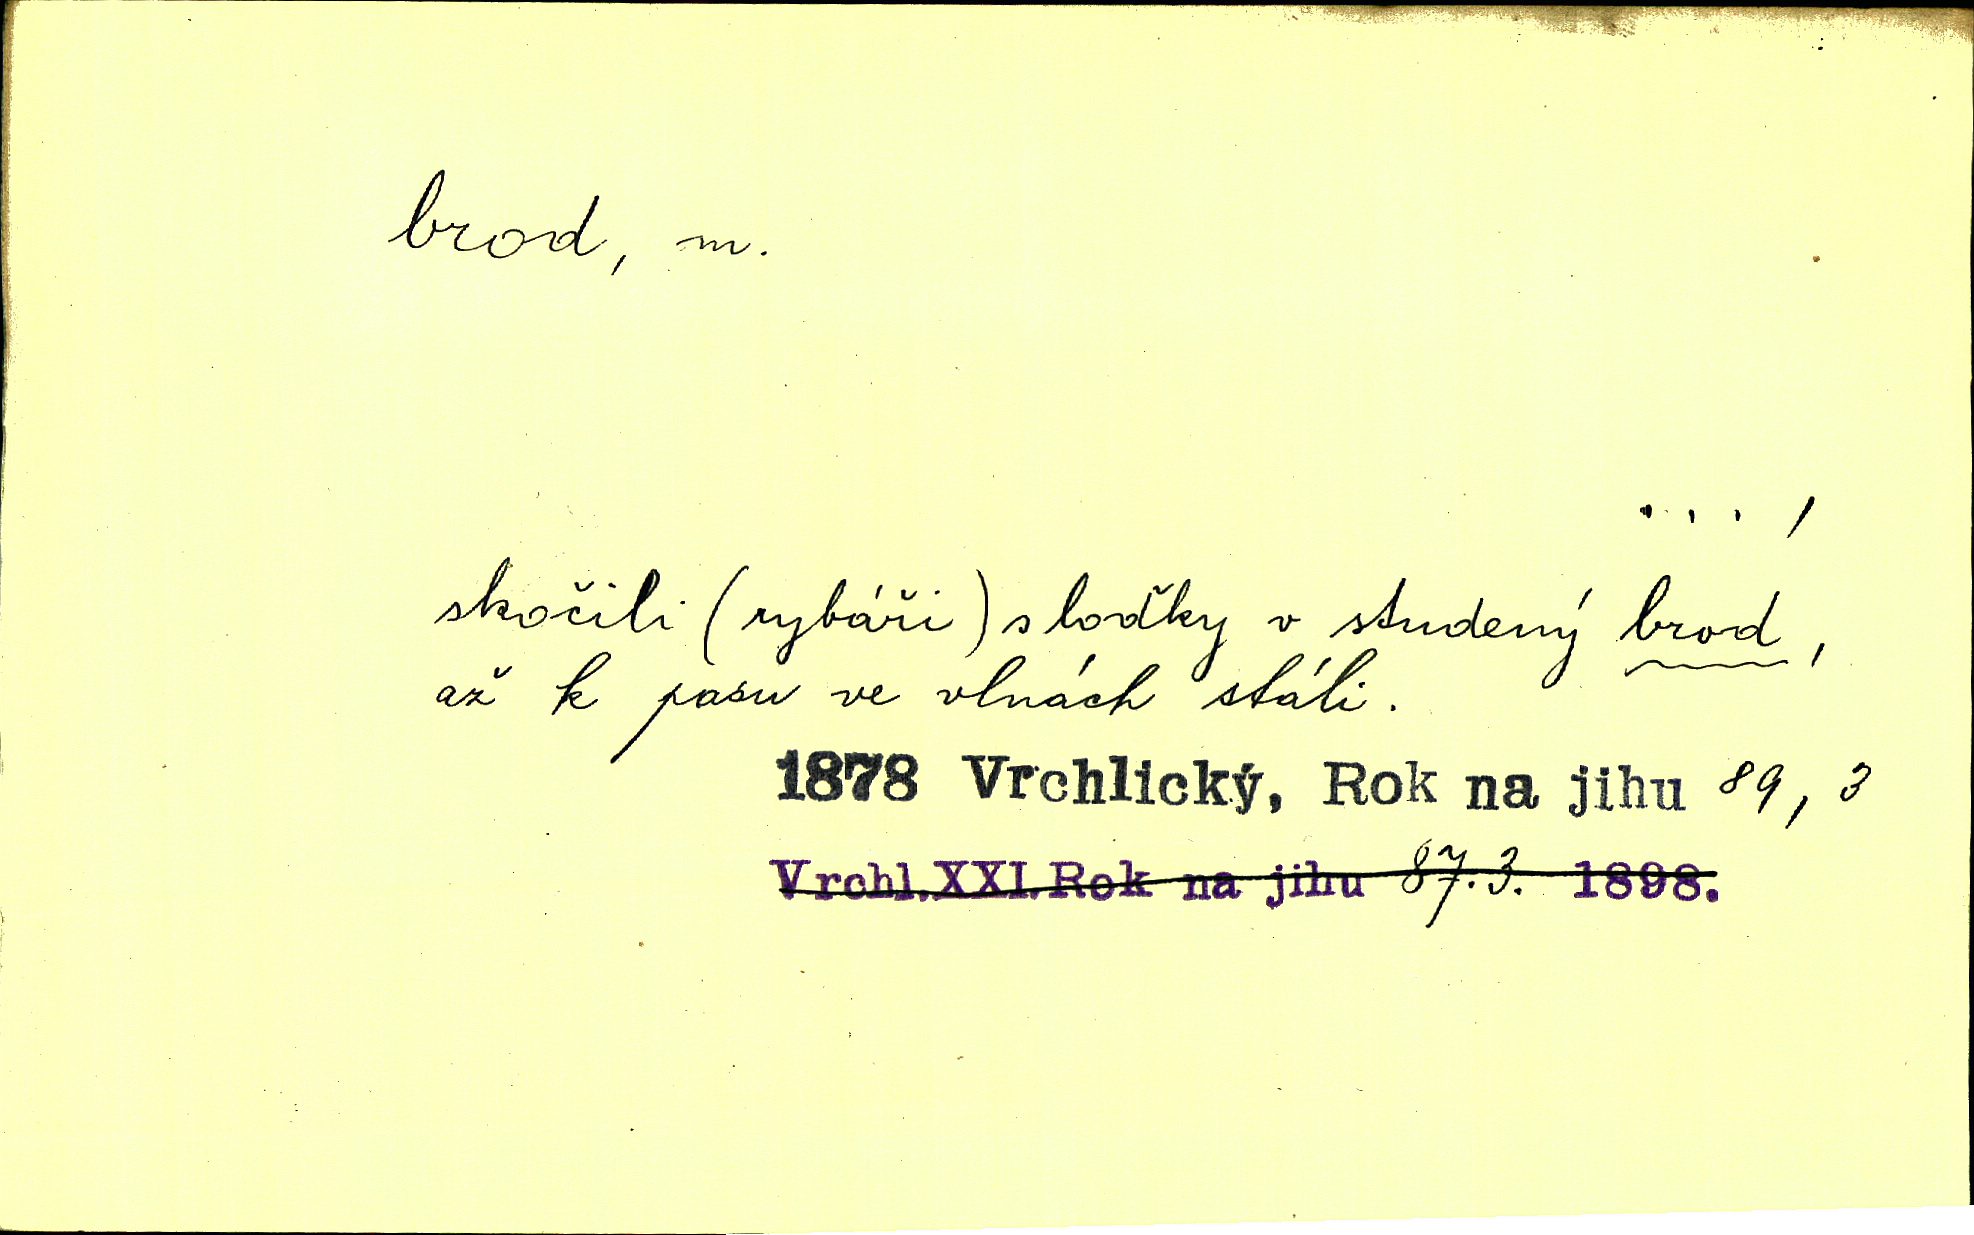 brod, m.
...,
skočili (rybáři) s loďky v studený brod,
až k pasu ve vlnách stáli.
1878 Vrchlický, Rok na jihu 89, 3
Vrchl.XXI.Rok na jihu 87.3. 1898.